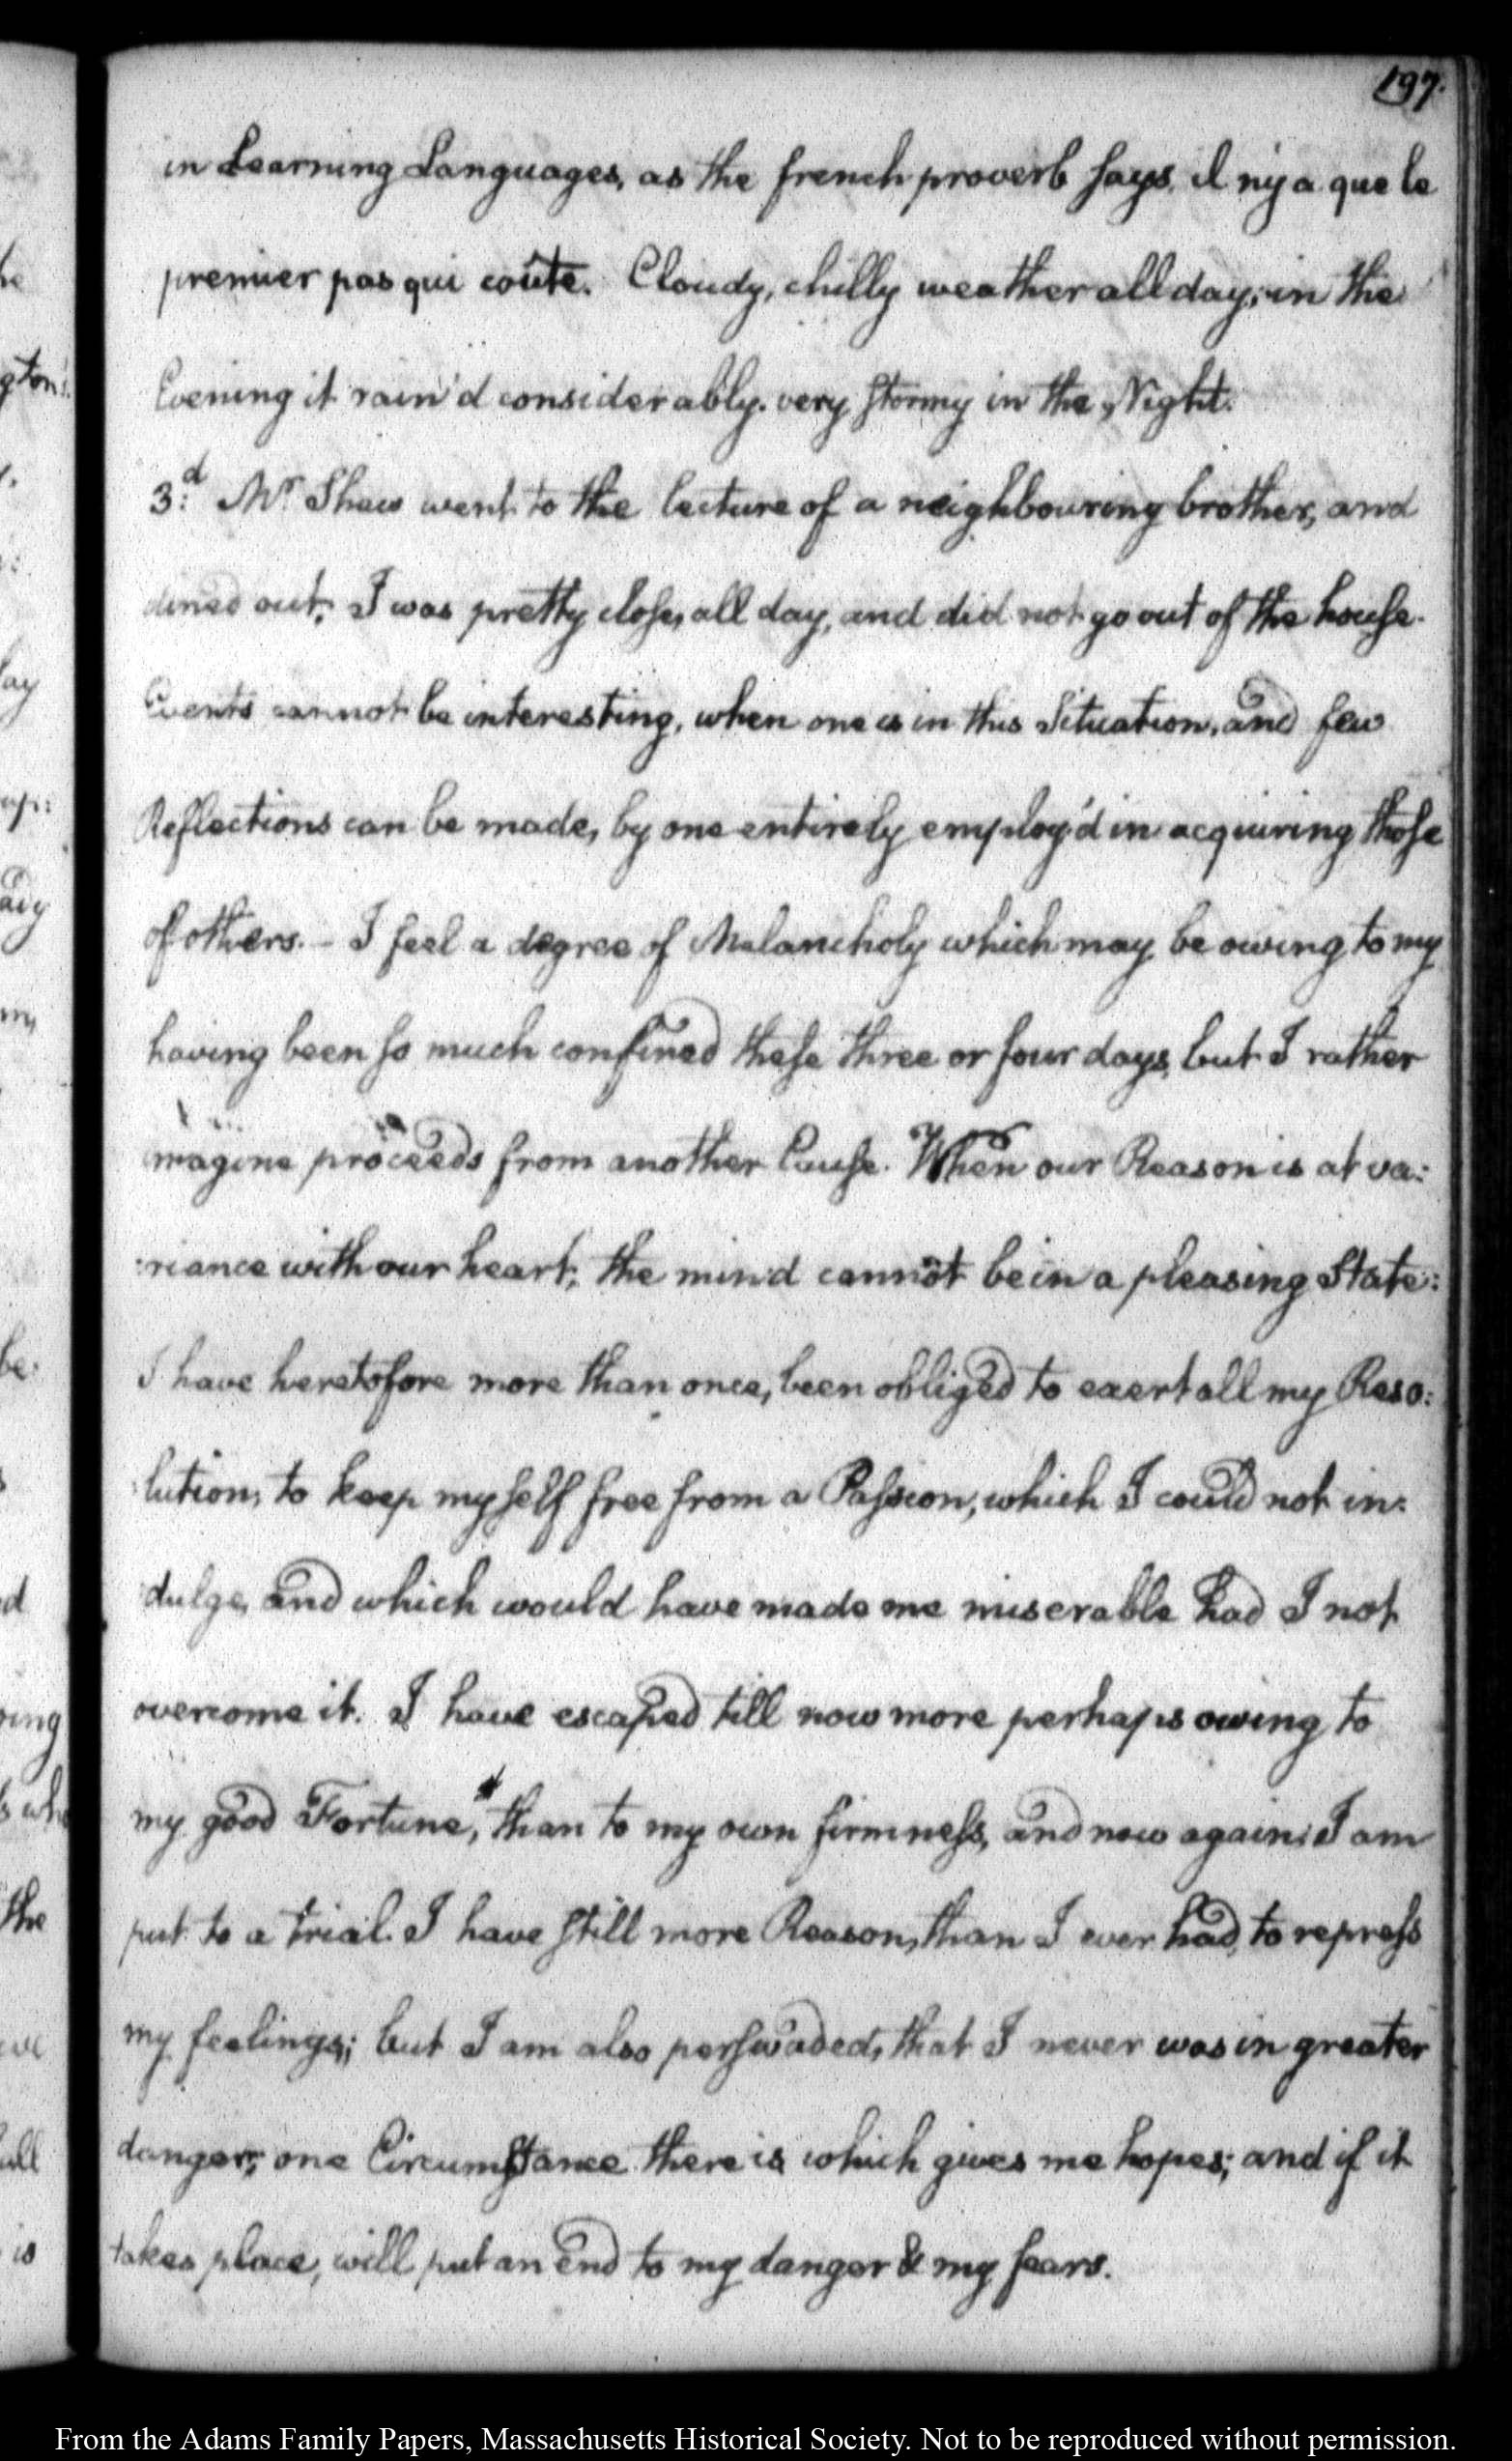 197.
in Learning Languages, as the french proverb says, il n'y a que le
premier pas qui coûte. Cloudy, chilly weather all day; in the
Evening it rain'd considerably. very stormy in the Night.
3:d Mr Shaw went to the lecture of a neighbouring brother, and
dined out; I was pretty close, all day, and did not go out of the house.
Events cannot be interesting, when one is in this Situation, and few
Reflections can be made, by one entirely employ'd in acquiring those
of others. — I feel a degree of Melancholy which may be owing to my
having been so much confined these three or four days, but I rather
imagine proceeds from another Cause. When our Reason is at va:
:riance with our heart; the mind cannot be in a pleasing State:
I have heretofore more than once, been obliged to exert all my Reso:
:lution, to keep myself free from a Passion, which I could not in:
:dulge, and which would have made me miserable had I not
overcome it. I have escaped till now more perhaps owing to
my good Fortune, than to my own firmness, and now again I am
put to a trial. I have still more Reason, than I ever had, to repress
my feelings; but I am also perswaded, that I never was in greater
danger; one Circumstance there is which gives me hopes; and if it
takes place, will put an End to my danger & my fears.
he
gton's
lay
up:
ady
be
d
ring
s who
the
all
is
From the Adams Family Papers, Massachusetts Historical Society. Not to be reproduced without permission.